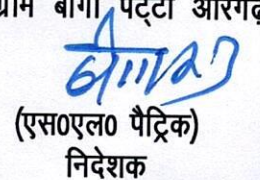 ग्राम बागी पट्टी औरगढ़
(एस0एल0 पैट्रिक)
निदेशक